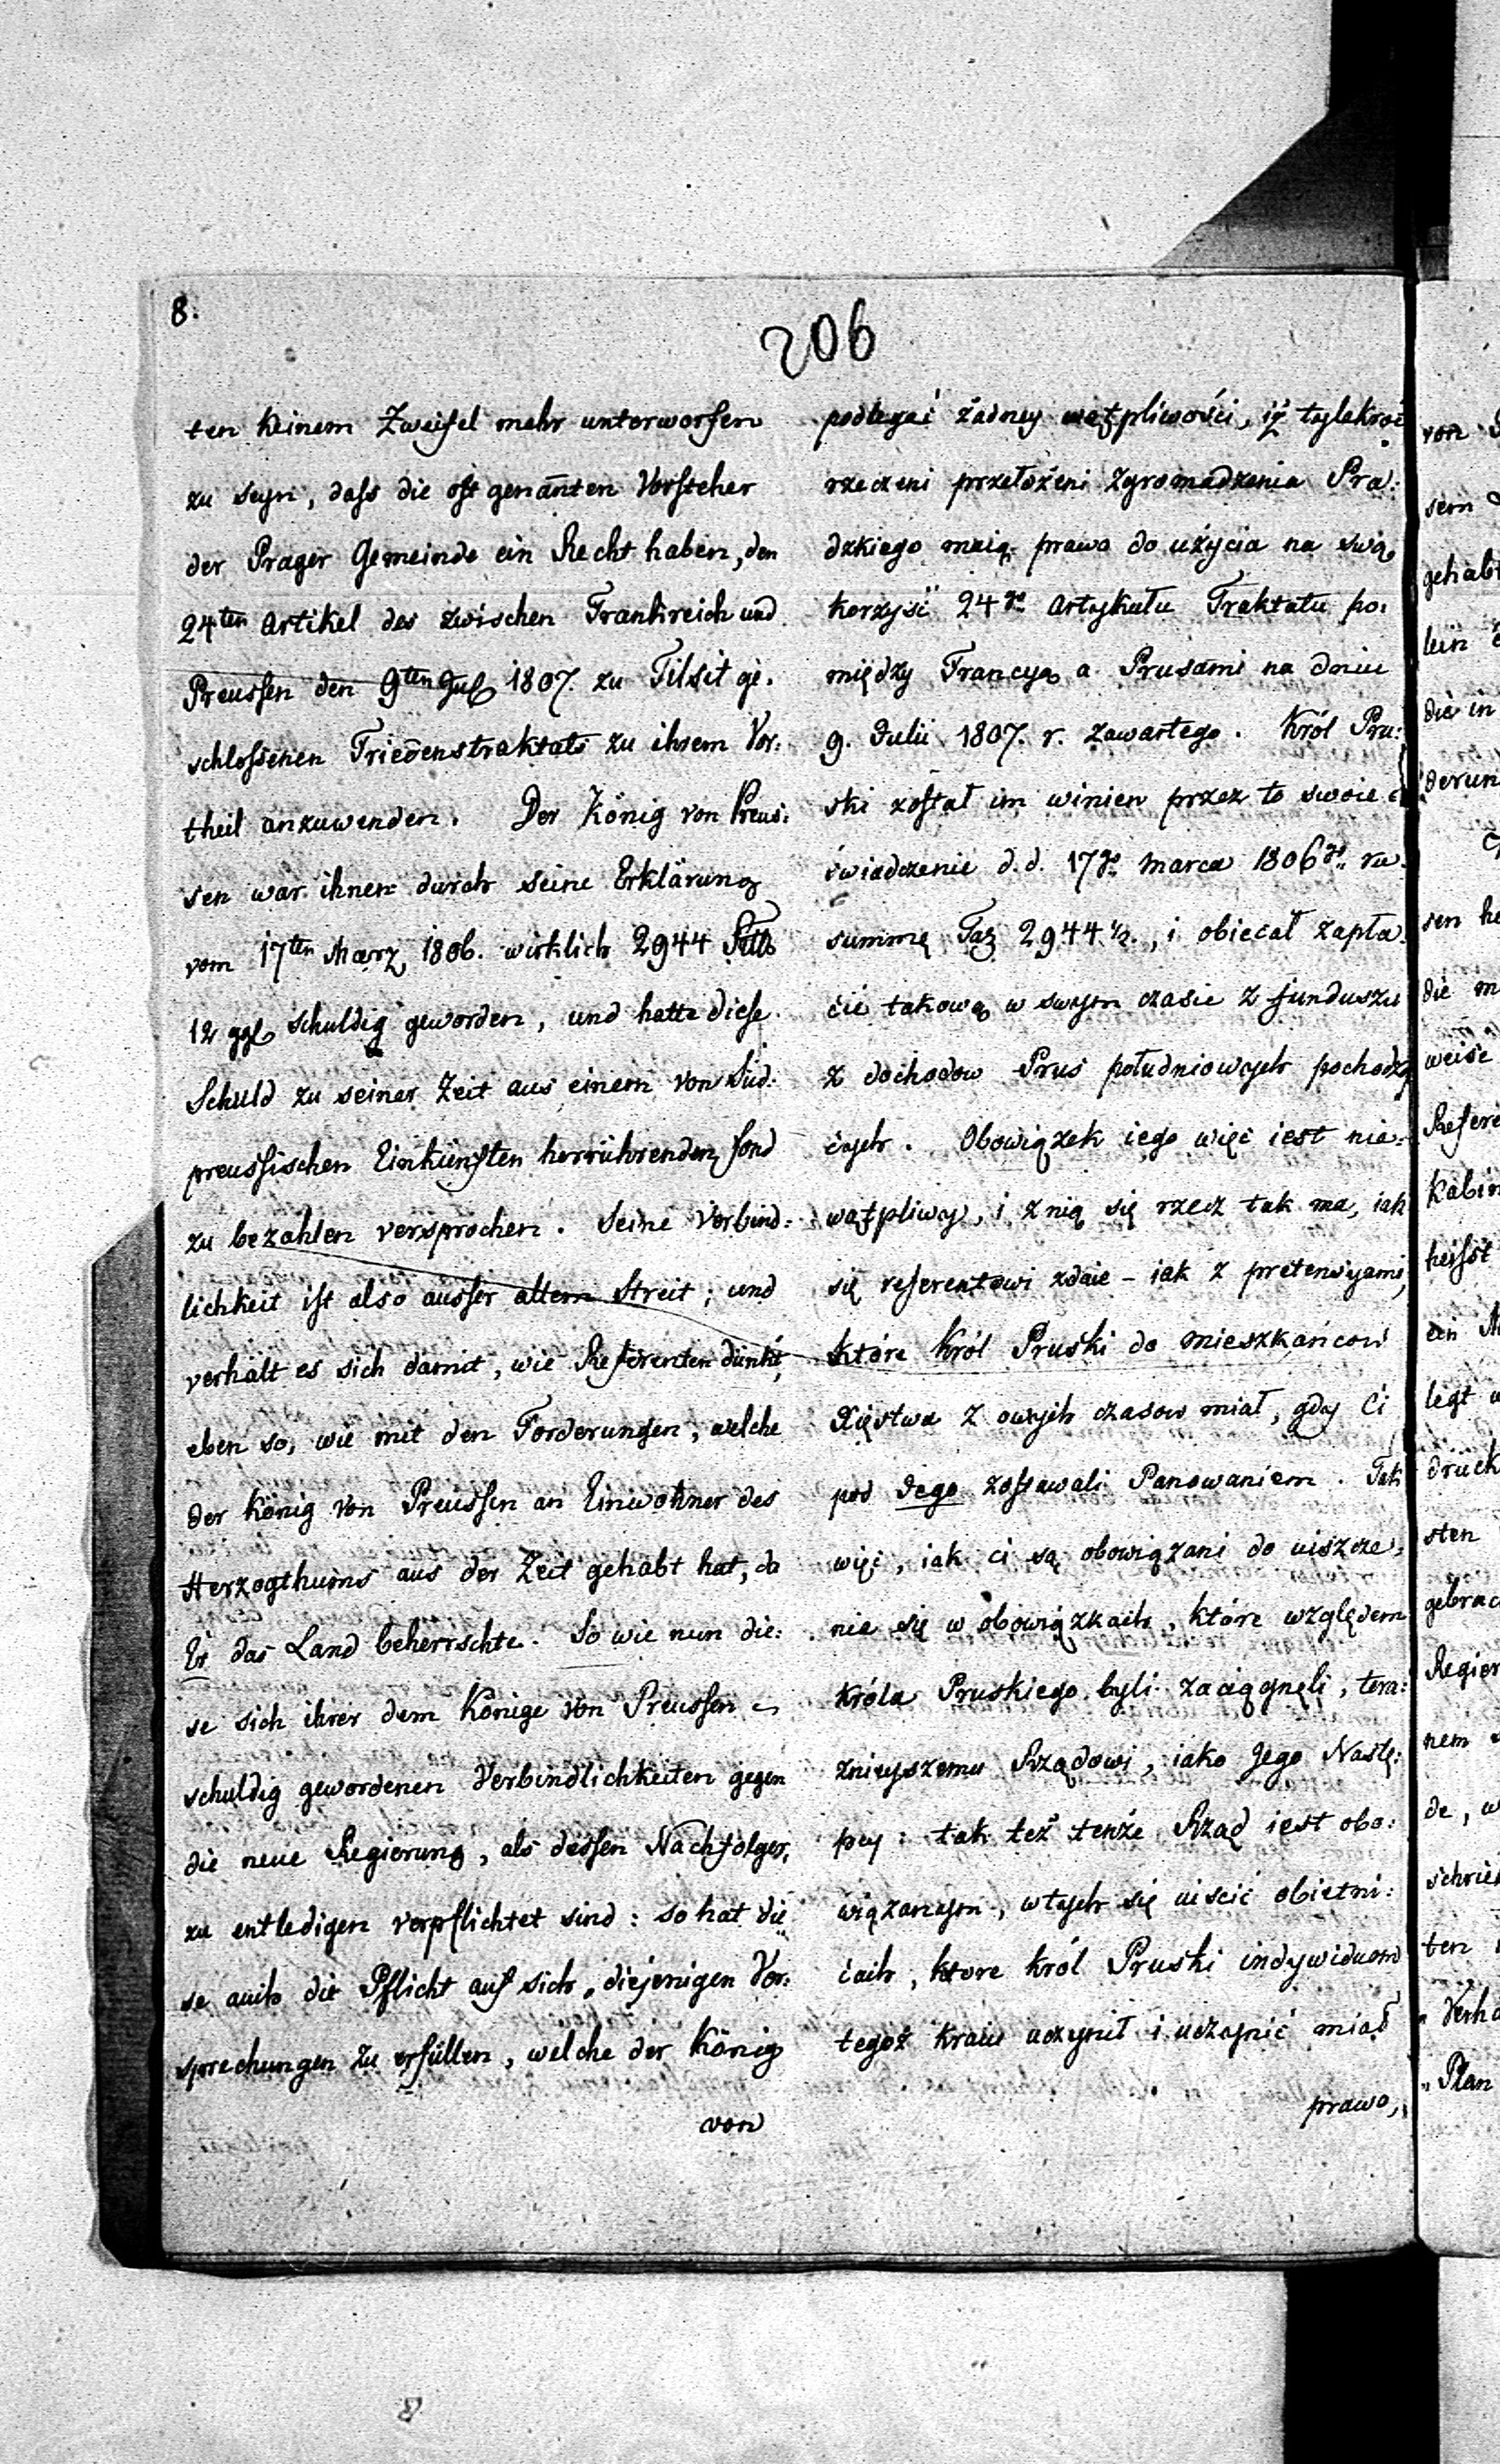 8.
206
ten keinem Zweifel mehr unterworfen
zu seyn, daſs die oft genan̄ten Vorſteher
der Prager Gemeinde ein Recht haben, den
24ten Artikel des zwischen Frankreich und
Preuſsen den 9ten Jul 1807. zu Tilsit ge:
schloſsenen Friedenstraktats zu ihrem Vor:
theil anzuwenden. Der König von Preus:
sen war ihnen durch seine Erklärung
vom 17ten Maerz 1806. wirklich 2944
12 ggl schuldig geworden, und hatte dieſe
Schuld zu seiner Zeit aus einem von Süd:
preuſsischen Einkünften herrührenden fond
zu bezahlen versprochen. Seine Verbind:
lichkeit iſt also auſser allem Streit; und
verhält es sich damit, wie Referenten dünkt,
eben so, wie mit den Forderungen, welche
der König von Preuſsen an Einwohner des
Herzogthums aus der Zeit gehabt hat, da
Er das Land beherrschte. So wie nun die:
se sich ihrer dem Könige von Preuſsen
schuldig gewordenen Verbindlichkeiten gegen
die neue Regierung, als deſsen Nachfolger,
zu entledigen verpflichtet sind: so hat die
se auch die Pflicht auf sich, diejenigen Ver:
sprechungen zu erfüllen, welche der König
von
podlegać żadney wątpliwości, iż tylekroć
rzeczeni przełożeni zgromadzenia Pra:
dzkiego maią prawo do użycia na swą
korzyść 24go Artykułu Traktatu po:
między Francyą a Prusami na dniu
9. Julii 1807. r. zawartego. Król Pru:
ski zoſtał im winien przez to swoie o
świadczenie d.d. 17go Marca 1806go ru
summę Tal 2944.½., i obiecał zapła
cić takową w swym czasie z funduszu
z dochodow Prus południowych pochodzą
cych. Obowiązek iego więc iest nie:
wątpliwy, i znią się rzecz tak ma, iak
się referentowi zdaie – iak z pretensyami,
które Król Pruski do mieszkańcow
Xięstwa z owych czasow miał, gdy Ci
pod Jego zoſtawali Panowaniem. Tak
więc, iak ci są obowiązani do uiszcze:
nia się w obowiązkach, które względem
Króla Pruskiego byli zaciągnęli, tera:
znieyszemu Rządowi, iako Jego Nastę:
pcy: tak też tenże Rząd iest obo:
wiązanym, wtych się uiscić obietni:
cach, ktore król Pruski indywiduom
tegoż kraiu uczynił i uczynić miał
prawo,
von
sem
gehabt
lein
die in
derun
sen he
die m
weise
Refere
Kabin
heiſst
ein
legt
drück
sten
gebrac
Regier
nem
de, w
schrie
ten
„Verh
„Plan